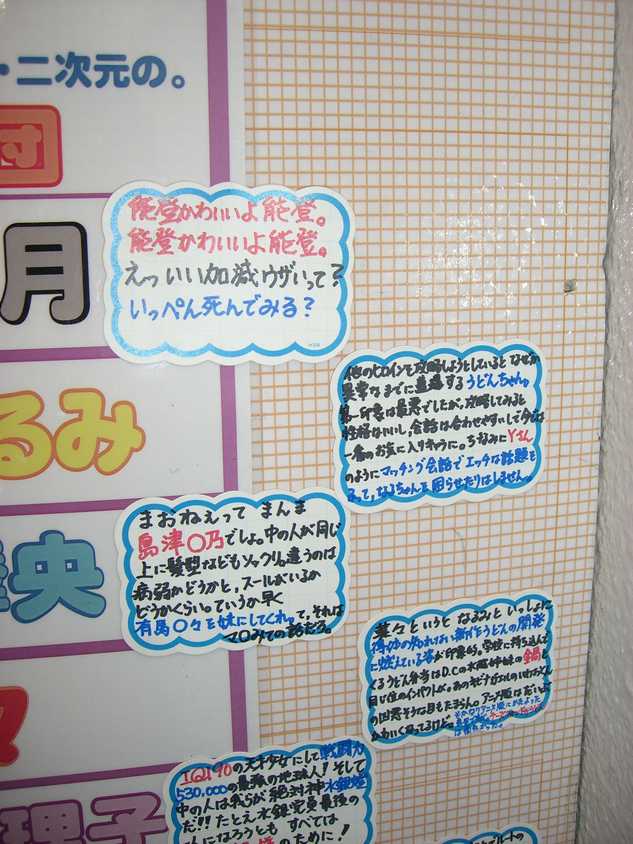 ・二次元の。
村
月
るみ
央
理子
能登かわいいよ能登。
能登かわいいよ能登。
えっいい加減ウザいって？
いっぺん死んでみる？
他のヒロインを攻略しようとしているとなぜか
異常なまでに遭遇するうどんちゃん。
第一印象は最悪でしたが、攻略してみると
性格はいいし、会話は合わせやすいしで今では
一番のお気に入りキャラに。ちなみにYさん
のようにマッチング会話でエッチな話題を
ふって、なるちゃんを困らせたりはしません。
まおねえって まんま
島津〇乃でしょ。中の人が同じ
上に髪型などもソックリ。違うのは
病弱かどうかと、スールがいるか
どうかくらい。ていうか早く
有馬〇々を妹にしてくれ。って、それは
マ〇みての話だろ。
菜々というとなるみといっしょに
得体の知れない新作うどんの開発
に燃えている姿が印象的。学校に持ち込んで
くるうどん弁当はD.Cの水越姉妹の鍋と
同じ位のインパクトが。あの
の凶悪そうな目もたまらん。アニメ版はだいぶ
かわいくなってるけど。
IQ190の天才少女にして戦闘力
530,000の最強の地球人！そして
中の人は我らが絶対神水銀燈
だ!!たとえ水銀党員最後の
人になろうとも すべては
のために！
ルートの